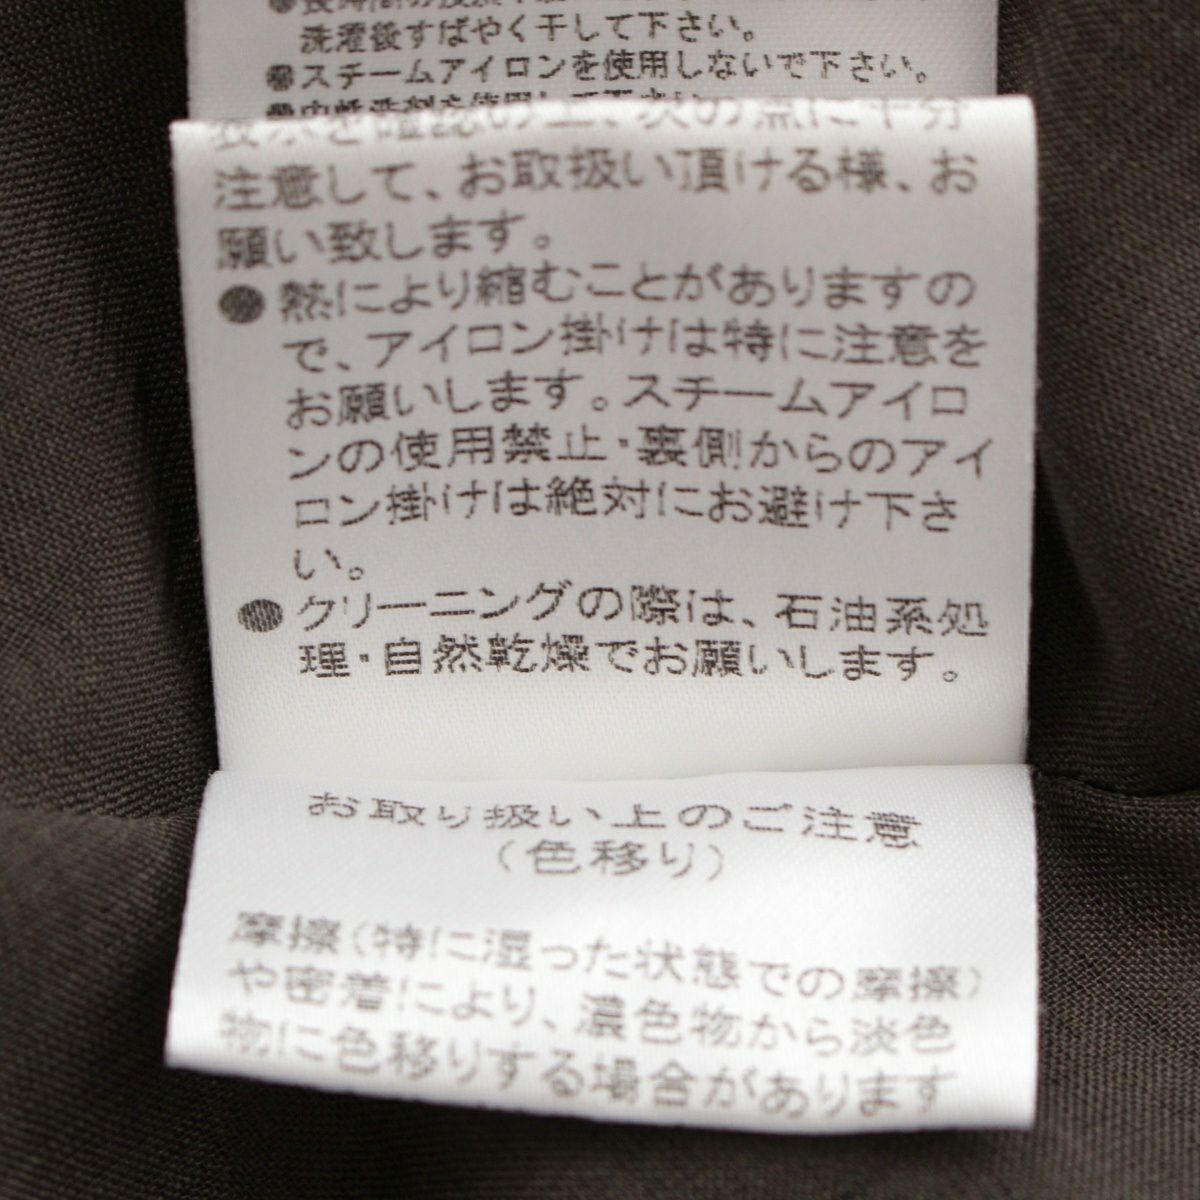 洗濯後すばやく干して下さい。
スチームアイロンを使用しないで下さい。
表示を確認の上、次の点に十分
注意して、お取扱い頂ける様、お
願い致します。
●熱により縮むことがありますの
で、アイロン掛けは特に注意を
お願いします。スチームアイロ
ンの使用禁止・裏側からのアイ
ロン掛けは絶対にお避け下さ
い。
●クリーニングの際は、石油系処
理・自然乾燥でお願いします。
お取り扱い上のご注意
(色移り)
摩擦(特に湿った状態での摩擦)
や密着により、濃色物から淡色
物に色移りする場合があります